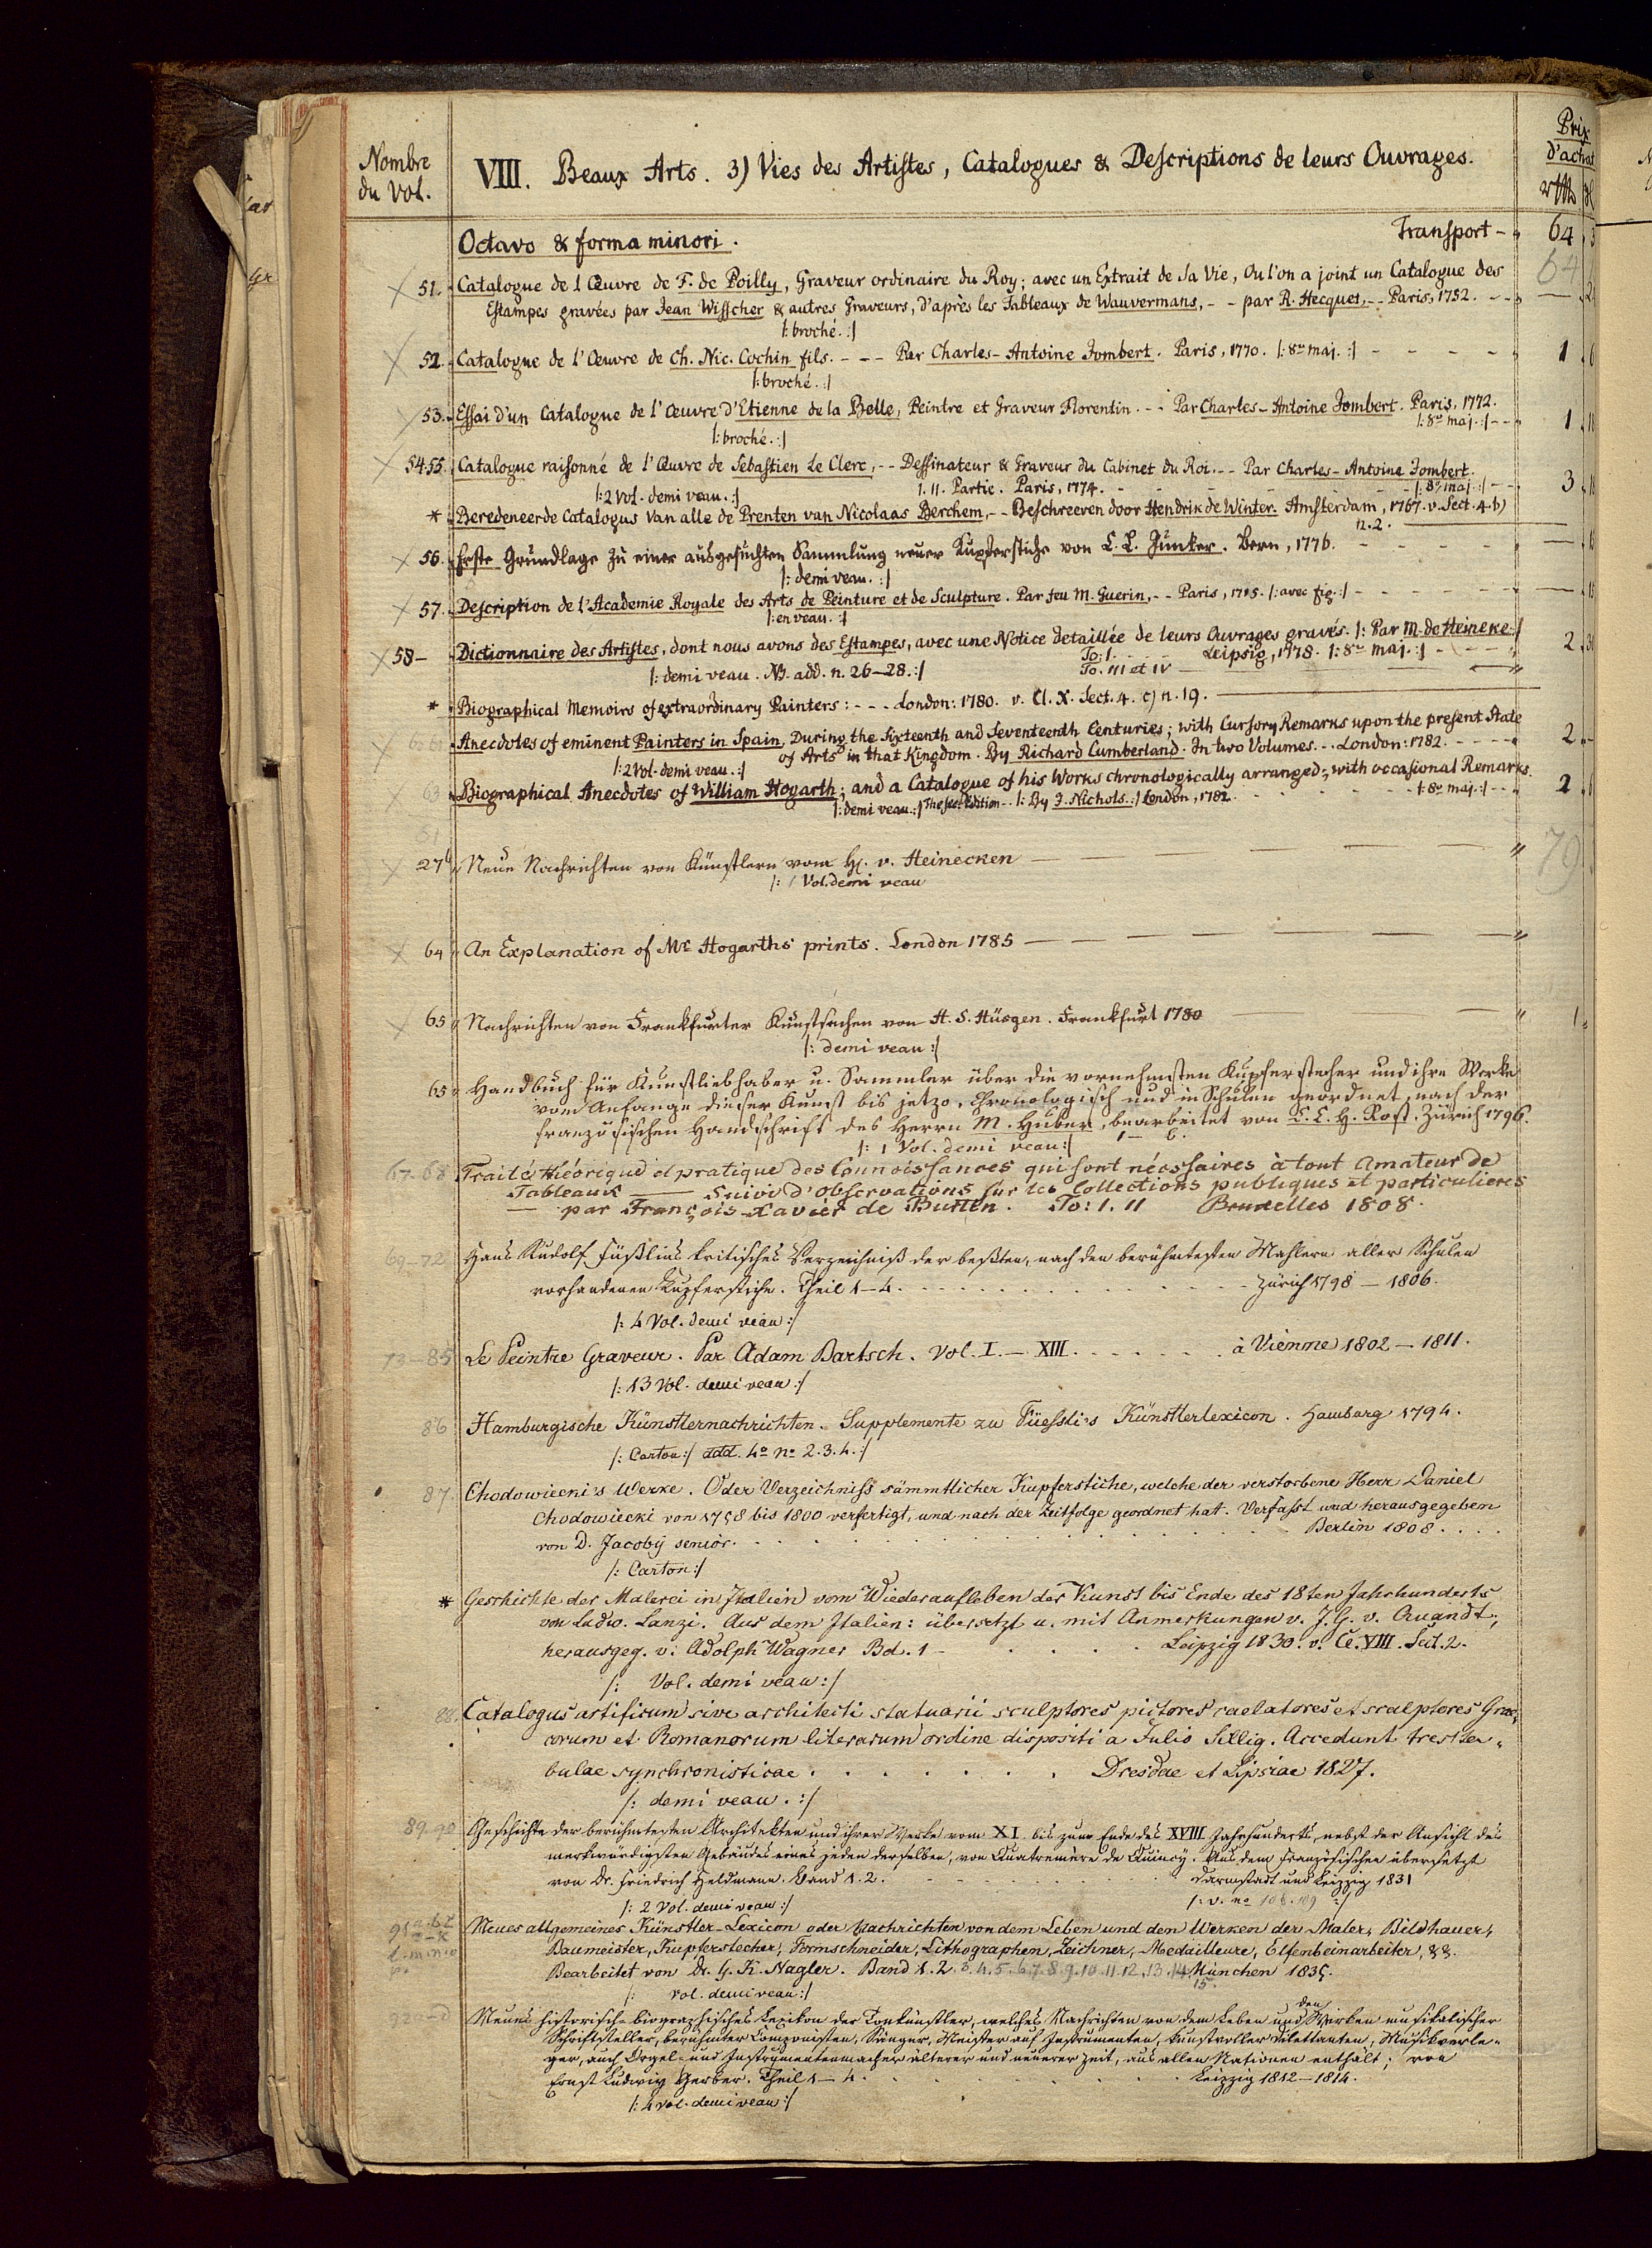 Nombre du Vol.
VIII. Beaux Arts. 3) Vies des Artistes, Catalogues & Descriptions de leurs Ouvrages.
Prix d'achat
Octavo & forma minori.
Transport - 64
64
51. Catalogue de l Œuvre de F. de Poilly, Graveur ordinaire du Roy; avec un Extrait de sa Vie, Ou l'on a joint un Catalogue des
Estampes gravées par Jean Wisscher & autres Graveurs, d'après les Tableaux de Wauvermans, - - par R. Hecquet, - - Paris, 1752. - - —
|: broché. :|
52. Catalogue de l'Œuvre de Ch. Nic. Cochin fils. - - - Par Charles-Antoine Jombert. Paris, 1770. |: 8vo maj. :| - - - - - 1
|: broché. :|
53. Essai d'un Catalogue de l'Œuvre d'Etienne de la Belle, Peintre et Graveur Florentin. - - Par Charles-Antoine Jombert. Paris, 1772.
|: broché. :| |: 8vo maj. :| - - 1
54.55. Catalogue raisonné de l'Œuvre de Sebastien Le Clerc, - - Dessinateur & Graveur du Cabinet du Roi. - - Par Charles-Antoine Jombert.
|: 2 Vol. demi veau. :| I. II. Partie. Paris, 1774. - - - - |: 8vo maj. :| - - 3
* Beredeneerde Catalogus van alle de Prenten van Nicolaas Berchem, - - Beschreeven door Hendrik de Winter. Amsterdam, 1767. v. Sect. 4. b)
n. 2.
56. Erste Grundlage zu einer ausgesuchten Sammlung neuer Kupferstiche von C. L. Junker. Bern, 1776. - - - - —
|: demi veau. :|
57. Description de l'Academie Royale des Arts de Peinture et de Sculpture. Par feu M. Guerin, - - Paris, 1715. |: avec fig. :| - - - - —
|: en veau. :|
58 - Dictionnaire des Artistes, dont nous avons des Estampes, avec une Notice detaillée de leurs Ouvrages gravés. |: Par M. de Heineke :|
To: I. - - - Leipsig, 1778. |: 8vo maj. :| - - - 2
|: demi veau. NB. add. n. 26-28. :| To. III et IV —
* Biographical Memoirs of extraordinary Painters: - - - London: 1780. v. Cl. X. Sect. 4. c) n. 19. —
Anecdotes of eminent Painters in Spain, During the Sixteenth and Seventeenth Centuries; with Cursory Remarks upon the present State
of Arts in that Kingdom. By Richard Cumberland. In two Volumes. - - London: 1782. - - - - 2
|: 2 Vol. demi veau. :|
63 Biographical Anecdotes of William Hogarth; and a Catalogue of his Works chronologically arranged; with occasional Remarks.
|: demi veau. :| The sec. Edition - - |: By J. Nichols. :| London, 1782. - - - |: 8vo maj. :| - - 2
27b Neue Nachrichten von Künstlern vom H. v. Heinecken —
|: 1 Vol. demi veau
79
64 An Explanation of Mr Hogarths prints. London 1785 —
65 Nachrichten von Frankfurter Kunstsachen von H. S. Hüsgen. Frankfurt 1780 — 1
|: demi veau :|
65 Handbuch für Kunstliebhaber u. Sammler über die vornehmsten Kupferstecher und ihre Werke
vom Anfange dieser Kunst bis jetzo, Chronologisch und in Schulen geordnet, nach der
französischen Handschrift des Herrn M. Huber, bearbeitet von C. C. H. Rost. Zürich 1796.
|: 1 Vol. demi veau :|
67-68 Traité théorique et pratique des Connoissances qui sont nécessaires à tout Amateur de
Tableaux — suivi d'observations sur les Collections publiques et particulieres
— par François-Xavier de Burtin. To: I. II Bruxelles 1808.
69-72 Hans Rudolf Füßlins kritisches Verzeichniß der beßten, nach den berühmtesten Mahlern aller Schulen
vorhandenen Kupferstiche. Theil 1-4. . . . . Zürich 1798 - 1806.
|: 4 Vol. demi veau :|
73-85 Le Peintre Graveur. Par Adam Bartsch. Vol. I. - XIII. . . . . . . à Vienne 1802 - 1811.
|: 13 Vol. demi veau :|
86 Hamburgische Künstlernachrichten. Supplemente zu Füessli's Künstlerlexicon. Hamburg 1794.
|: Carton :| add. 4o No 2. 3. 4. :|
87. Chodowiecki's Werke. Oder Verzeichniss sämmtlicher Kupferstiche, welche der verstorbene Herr Daniel
Chodowiecki von 1758 bis 1800 verfertigt, und nach der Zeitfolge geordnet hat. Verfasst und herausgegeben
von D. Jacoby senior. . . . . . Berlin 1808. . . .
|: Carton :|
* Geschichte der Malerei in Italien vom Wiederaufleben der Kunst bis Ende des 18ten Jahrhunderts
von Ludw. Lanzi. Aus dem Italien: übersetzt u. mit Anmerkungen v. J. G. v. Quandt;
herausgeg. v. Adolph Wagner Bd. 1 - . . . . Leipzig 1830. v. Cl. VIII. Sect. 2.
|: Vol. demi veau :|
88. Catalogus artificum sive architecti statuarii sculptores pictores caelatores et scalptores Grae-
corum et Romanorum literarum ordine dispositi a Julio Sillig. Accedunt tres ta-
bulae synchronisticae. . . . . . . Dresdae et Lipsiae 1827.
|: demi veau. :|
89.90 Geschichte der berühmtesten Architekten und ihrer Werke vom XI. bis zum Ende des XVIII Jahrhunderts, nebst der Ansicht des
merkwürdigsten Gebäudes eines jeden derselben, von Quatremère de Quincy. Aus dem Französischen übersetzt
von Dr. Friedrich Heldmann. Band 1. 2. - - - - Darmstadt und Leipzig 1831
|: 2 Vol. demi veau :| |: v. no 108. 109 :|
Neues allgemeines Künstler-Lexicon oder Nachrichten von dem Leben und den Werken der Maler, Bildhauer,
Baumeister, Kupferstecher, Formschneider, Lithographen, Zeichner, Medailleure, Elfenbeinarbeiter, &&.
Bearbeitet von Dr. G. K. Nagler. Band 1. 2. 3. 4. 5. 6. 7. 8. 9. 10. 11. 12. 13. 14. 15. München 1835.
|: vol. demi veau :|
92a-d Neues historisch-biographisches Lexikon der Tonkünstler, welches Nachrichten von dem Leben und den Werken musikalischer
Schriftsteller, berühmter Componisten, Sänger, Meister auf Instrumenten, kunstvoller Dilettanten, Musikverle-
ger, auch Orgel- und Instrumentenmacher älterer und neuerer Zeit, aus allen Nationen enthält; von
Ernst Ludwig Gerber. Theil 1-4. . . . . Leipzig 1812-1814.
|: 4 vol. demi veau :|